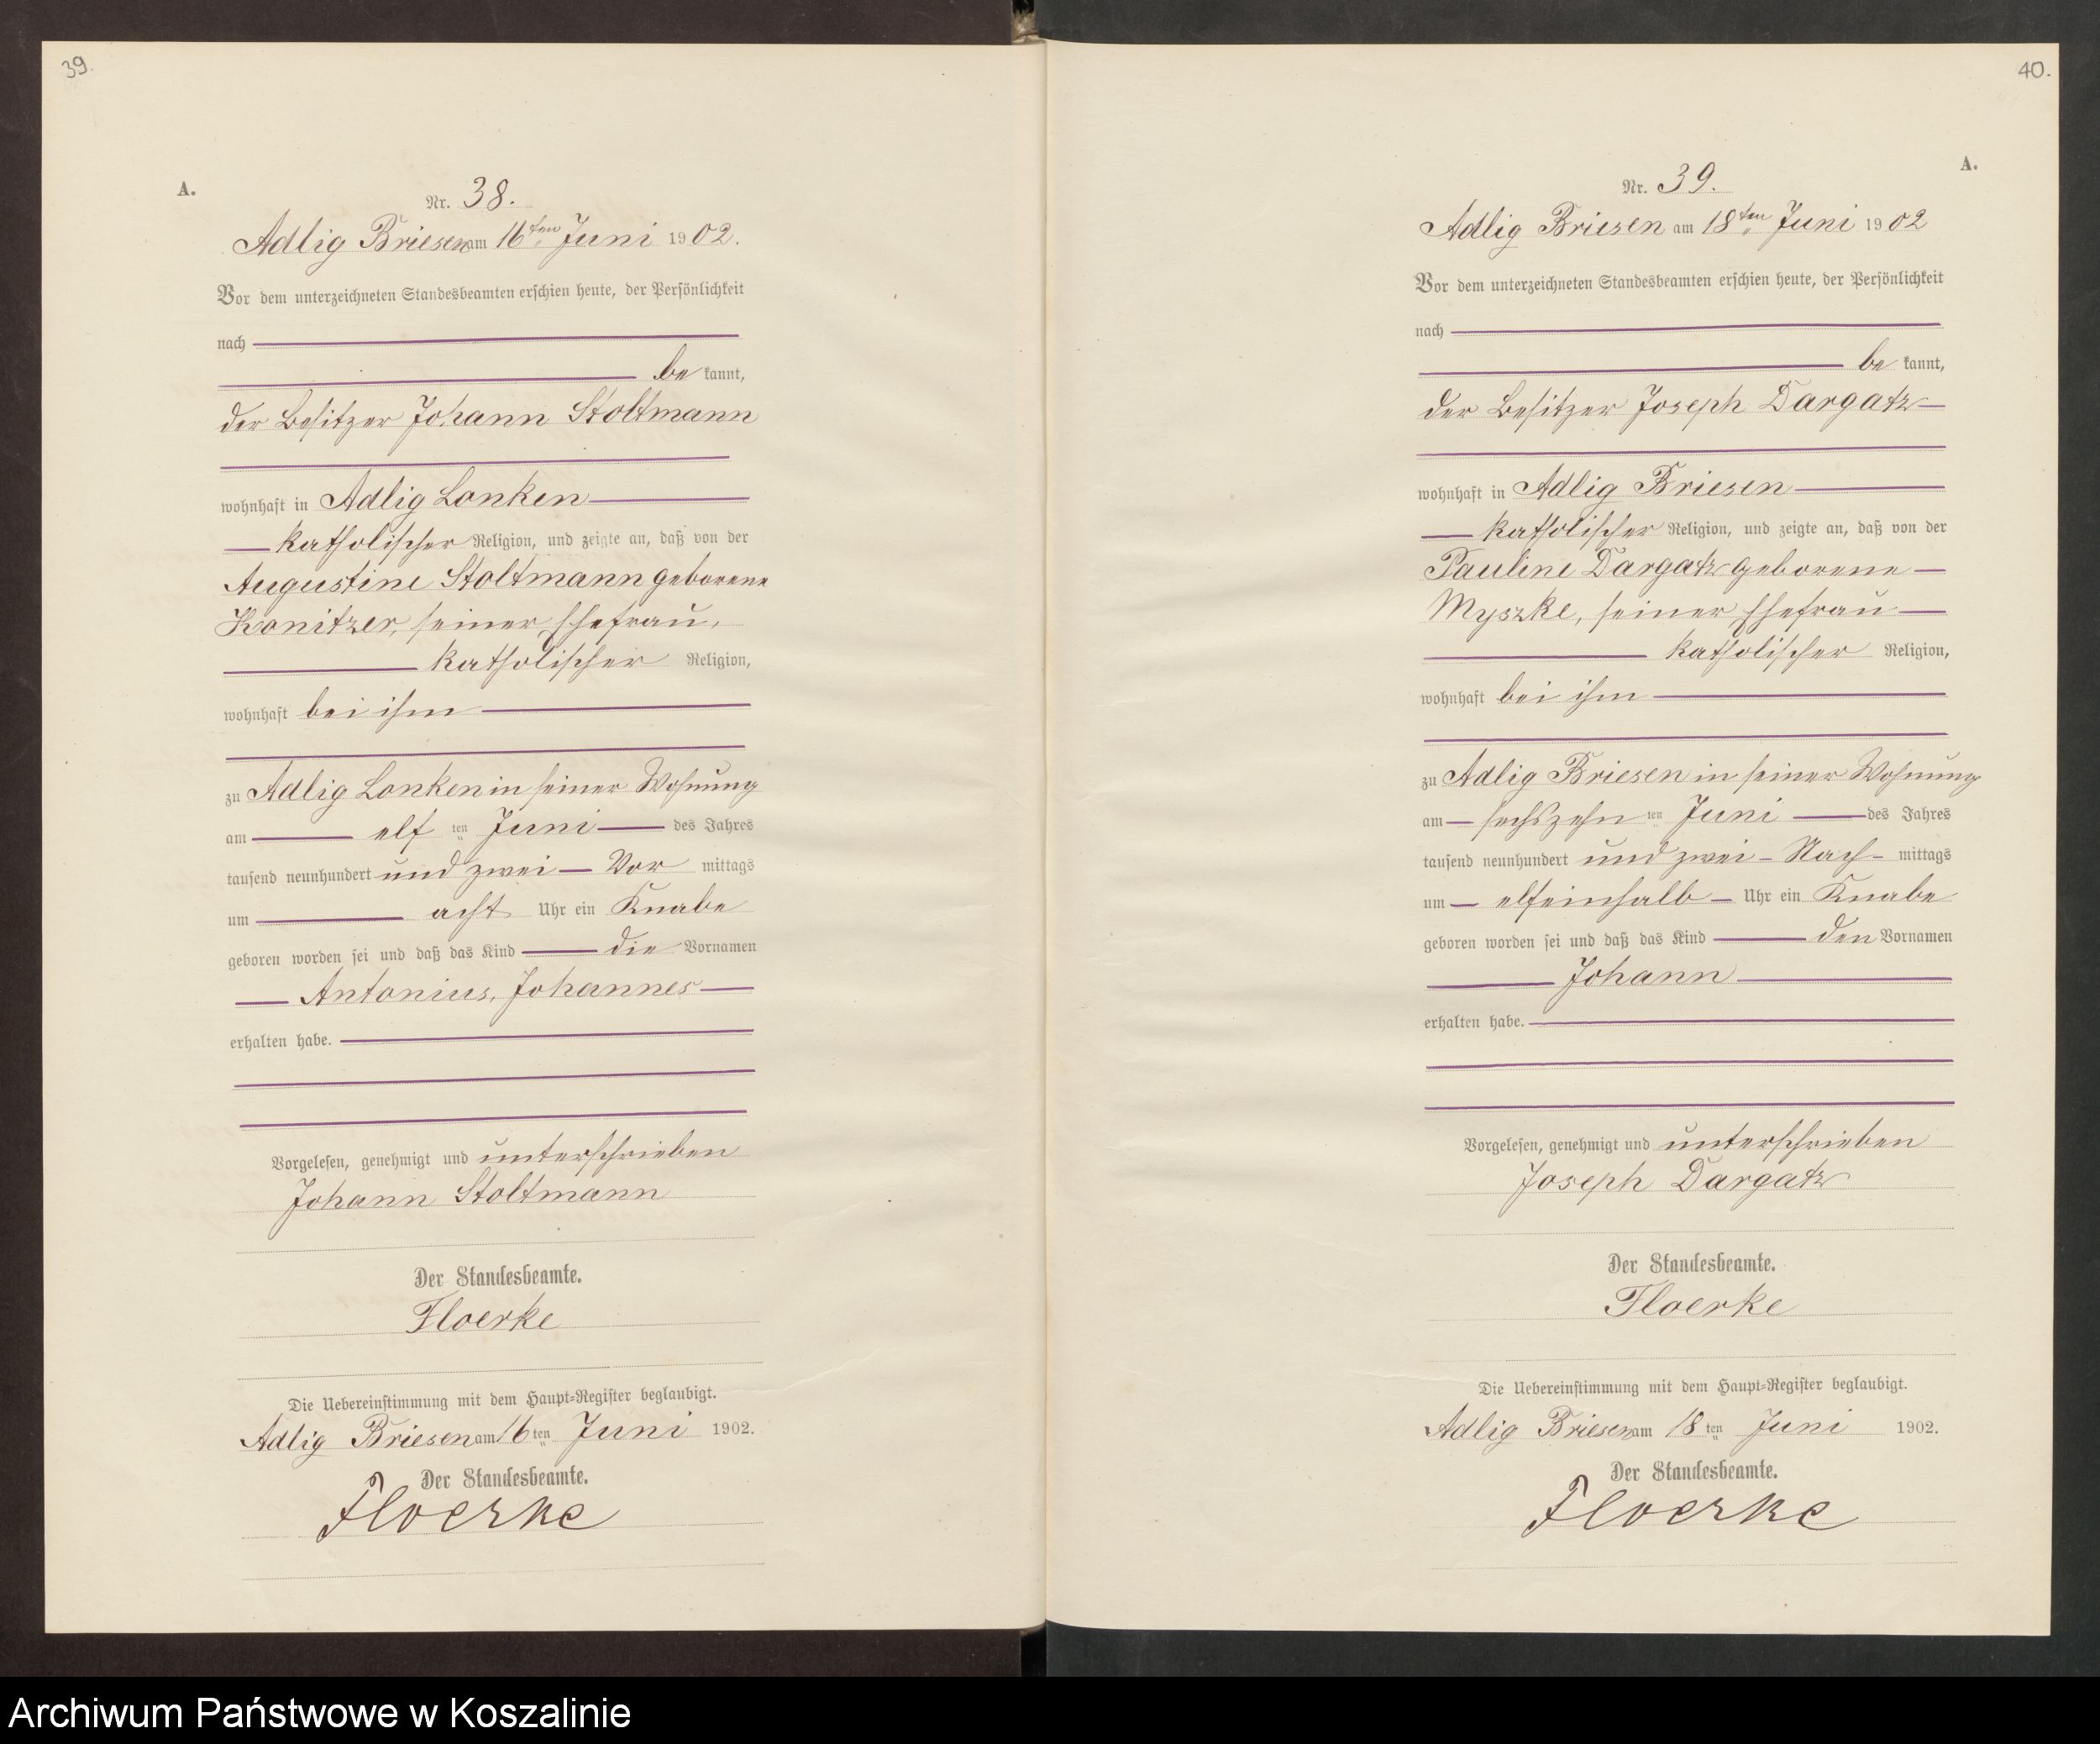 39.
A.
Nr. 38.
Adlig Briesen am 16ten Juni 1902.
Vor dem unterzeichneten Standesbeamten erschien heute, der Persönlichkeit
nach
be kannt,
der Besitzer Johann Stoltmann
wohnhaft in Adlig Lonken
katholischer Religion, und zeigte an, daß von der
Augustine Stoltmann geborene
Konitzer, seiner Ehefrau,
katholischer Religion,
wohnhaft bei ihm
zu Adlig Lonken in seiner Wohnung
am elf ten Juni des Jahres
tausend neunhundert und zwei Vor mittags
um acht Uhr ein Knabe
geboren worden sei und daß das Kind die Vornamen
Antonius, Johannes
erhalten habe.
Vorgelesen, genehmigt und unterschrieben
Johann Stoltmann
Der Standesbeamte.
Floerke
Die Uebereinstimmung mit dem Haupt-Register beglaubigt.
Adlig Briesen am 16 ten Juni 1902.
Der Standesbeamte.
Floerke
40.
A.
Nr. 39.
Adlig Briesen am 18ten Juni 1902
Vor dem unterzeichneten Standesbeamten erschien heute, der Persönlichkeit
nach
be kannt,
der Besitzer Joseph Dargatz
wohnhaft in Adlig Briesen
katholischer Religion, und zeigte an, daß von der
Pauline Dargatz geborene
Myszke, seiner Ehefrau
katholischer Religion,
wohnhaft bei ihm
zu Adlig Briesen in seiner Wohnung
am sechszehn ten Juni des Jahres
tausend neunhundert und zwei - Nach- mittags
um elfeinhalb Uhr ein Knabe
geboren worden sei und daß das Kind den Vornamen
Johann
erhalten habe.
Vorgelesen, genehmigt und unterschrieben
Joseph Dargatz
Der Standesbeamte.
Floerke
Die Uebereinstimmung mit dem Haupt-Register beglaubigt.
Adlig Briesen am 18 ten Juni 1902.
Der Standesbeamte.
Floerke
Archiwum Państwowe w Koszalinie